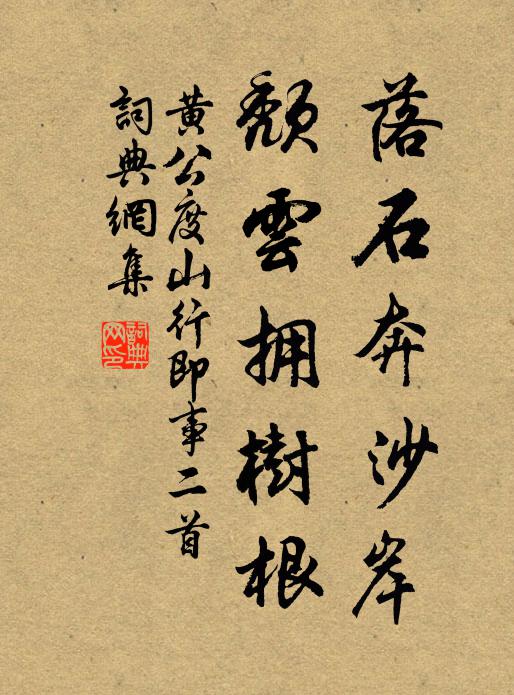 落石奔沙岸
頹雲拥樹根
黄公度山行即事二首
詞典網集
詞典网印